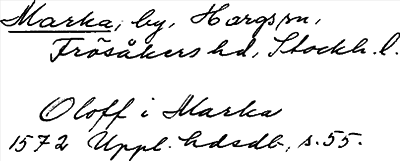 Marka, by, Hargs sn,
Frösåkers hd, Stockh. l.
Oloff i Marka
1572 Uppl. hdsdb, s. 55.